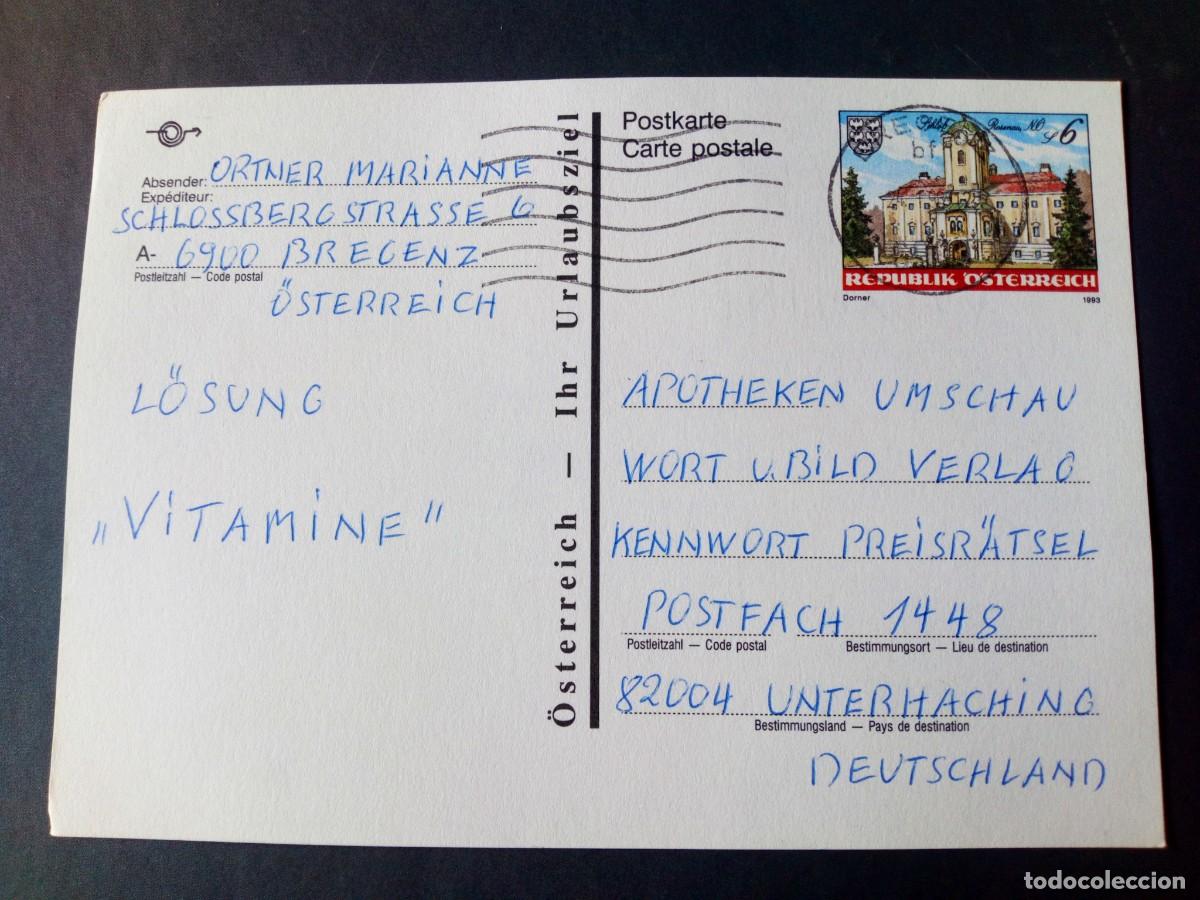 Absender: ORTNER MARIANNE
Expéditeur:
SCHLOSSBERGSTRASSE 6
A- 6900 BREGENZ
Postleitzahl — Code postal
ÖSTERREICH
LÖSUNG
„VITAMINE"
Österreich — Ihr Urlaubsziel
Postkarte
Carte postale
Schloß Rosenau, NÖ S 6
bf
REPUBLIK ÖSTERREICH
Dorner 1993
APOTHEKEN UMSCHAU
WORT U. BILD VERLAG
KENNWORT PREISRÄTSEL
POSTFACH 1448
Postleitzahl — Code postal Bestimmungsort — Lieu de destination
82004 UNTERHACHING
Bestimmungsland — Pays de destination
DEUTSCHLAND
todocoleccion